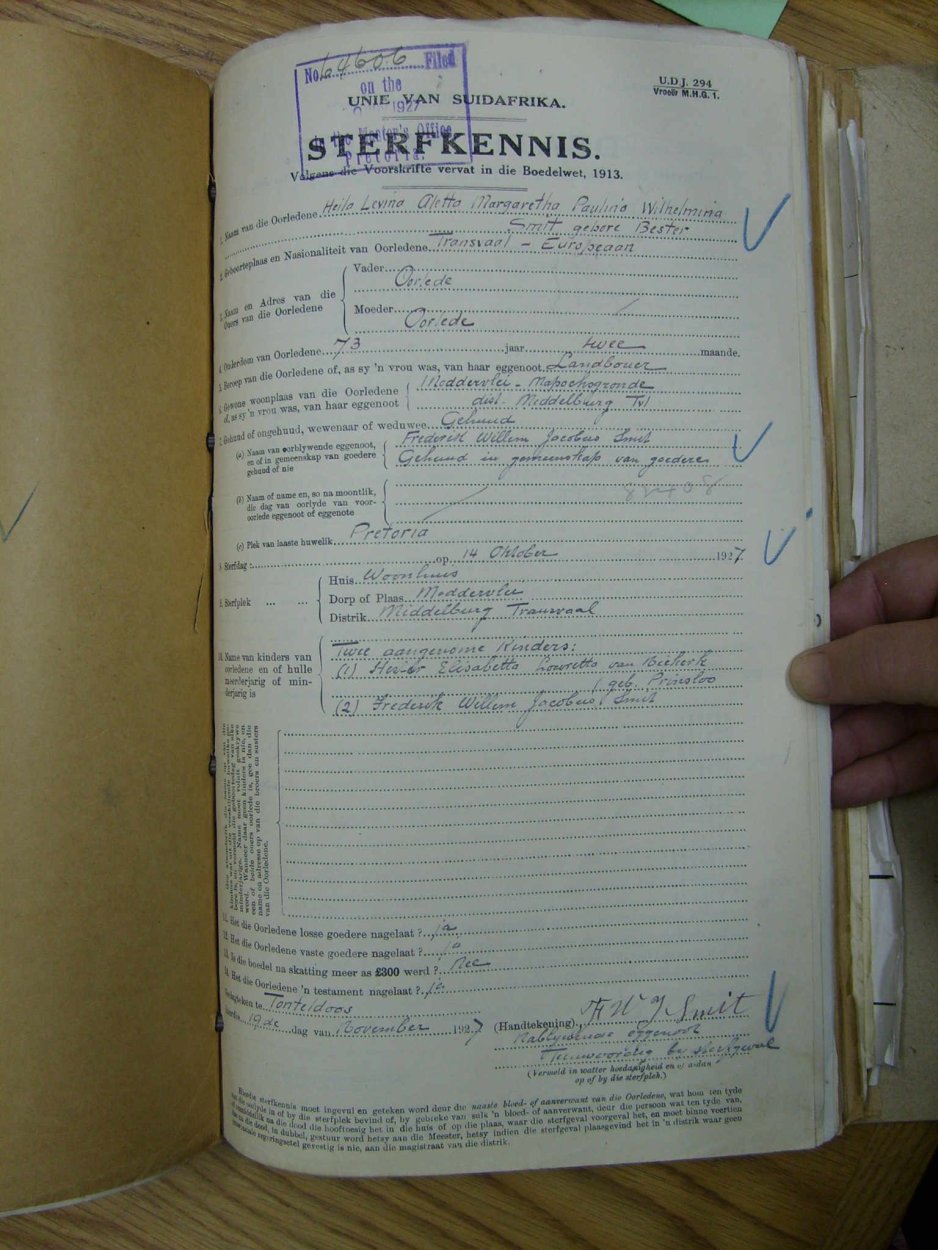 No. 64606 Filed
on the
1927
Master's Office
Pretoria.
U.D.J. 294
Vroeër M.H.G. 1.
UNIE VAN SUIDAFRIKA.
STERFKENNIS.
Volgens die Voorskrifte vervat in die Boedelwet, 1913.
1. Naam van die Oorledene Heila Levina Aletta Margaretha Paulina Wilhelmina
Smit gebore Bester
2. Geboorteplaas en Nasionaliteit van Oorledene Transvaal - Europeaan
3. Naam en Adres van die Ouers van die Oorledene
Vader Oorlede
Moeder Oorlede
4. Ouderdom van Oorledene 73 jaar twee maande.
5. Beroep van die Oorledene of, as sy 'n vrou was, van haar eggenoot Landbouer
6. Gewone woonplaas van die Oorledene of, as sy 'n vrou was, van haar eggenoot
Moddervlei - Mapochsgronde
dist. Middelburg Tvl
7. Gehuud of ongehuud, wewenaar of weduwee Gehuud
(a) Naam van oorblywende eggenoot, en of in gemeenskap van goedere gehuud of nie
Frederik Willem Jacobus Smit
Gehuud in gemeenskap van goedere
(b) Naam of name en, so na moontlik, die dag van oorlyde van vooroorlede eggenoot of eggenote
(c) Plek van laaste huwelik Pretoria
8. Sterfdag: op 14 Oktober 1927.
9. Sterfplek
Huis Woonhuis
Dorp of Plaas Moddervlei
Distrik Middelburg Transvaal
10. Name van kinders van oorledene en of hulle meerderjarig of minderjarig is
Twee aangenome Kinders:
(1) Hester Elisabetta Lowretta van Biekerk
(geb. Prinsloo
(2) Frederik Willem Jacobus Smit
van die Oorledene.
11. Het die Oorledene losse goedere nagelaat? ja
12. Het die Oorledene vaste goedere nagelaat? ja
13. Is die boedel na skatting meer as £300 werd? Nee
14. Het die Oorledene 'n testament nagelaat? ja
Geteken te Tonteldoos
hierdie 19de dag van November 1927
(Handtekening) F W J Smit
Nablywende eggenoot
Teenwoordig by sterfgeval
(Vermeld in watter hoedanigheid en of aldan
op of by die sterfplek.)
Hierdie sterfkennis moet ingevul en geteken word deur die naaste bloed- of aanverwant van die Oorledene, wat hom ten tyde
van die oorlyde in of by die sterfplek bevind of, by gebreke van sulk 'n bloed- of aanverwant, deur die persoon wat ten tyde van,
of onmiddellik na die dood die hooftoesig het in die huis of op die plaas, waar die sterfgeval voorgeval het, en moet binne veertien
dae na die dood, in dubbel, gestuur word hetsy aan die Meester, hetsy indien die sterfgeval plaasgevind het in 'n distrik waar geen
provinsiale regeringsetel gevestig is nie, aan die magistraat van die distrik.